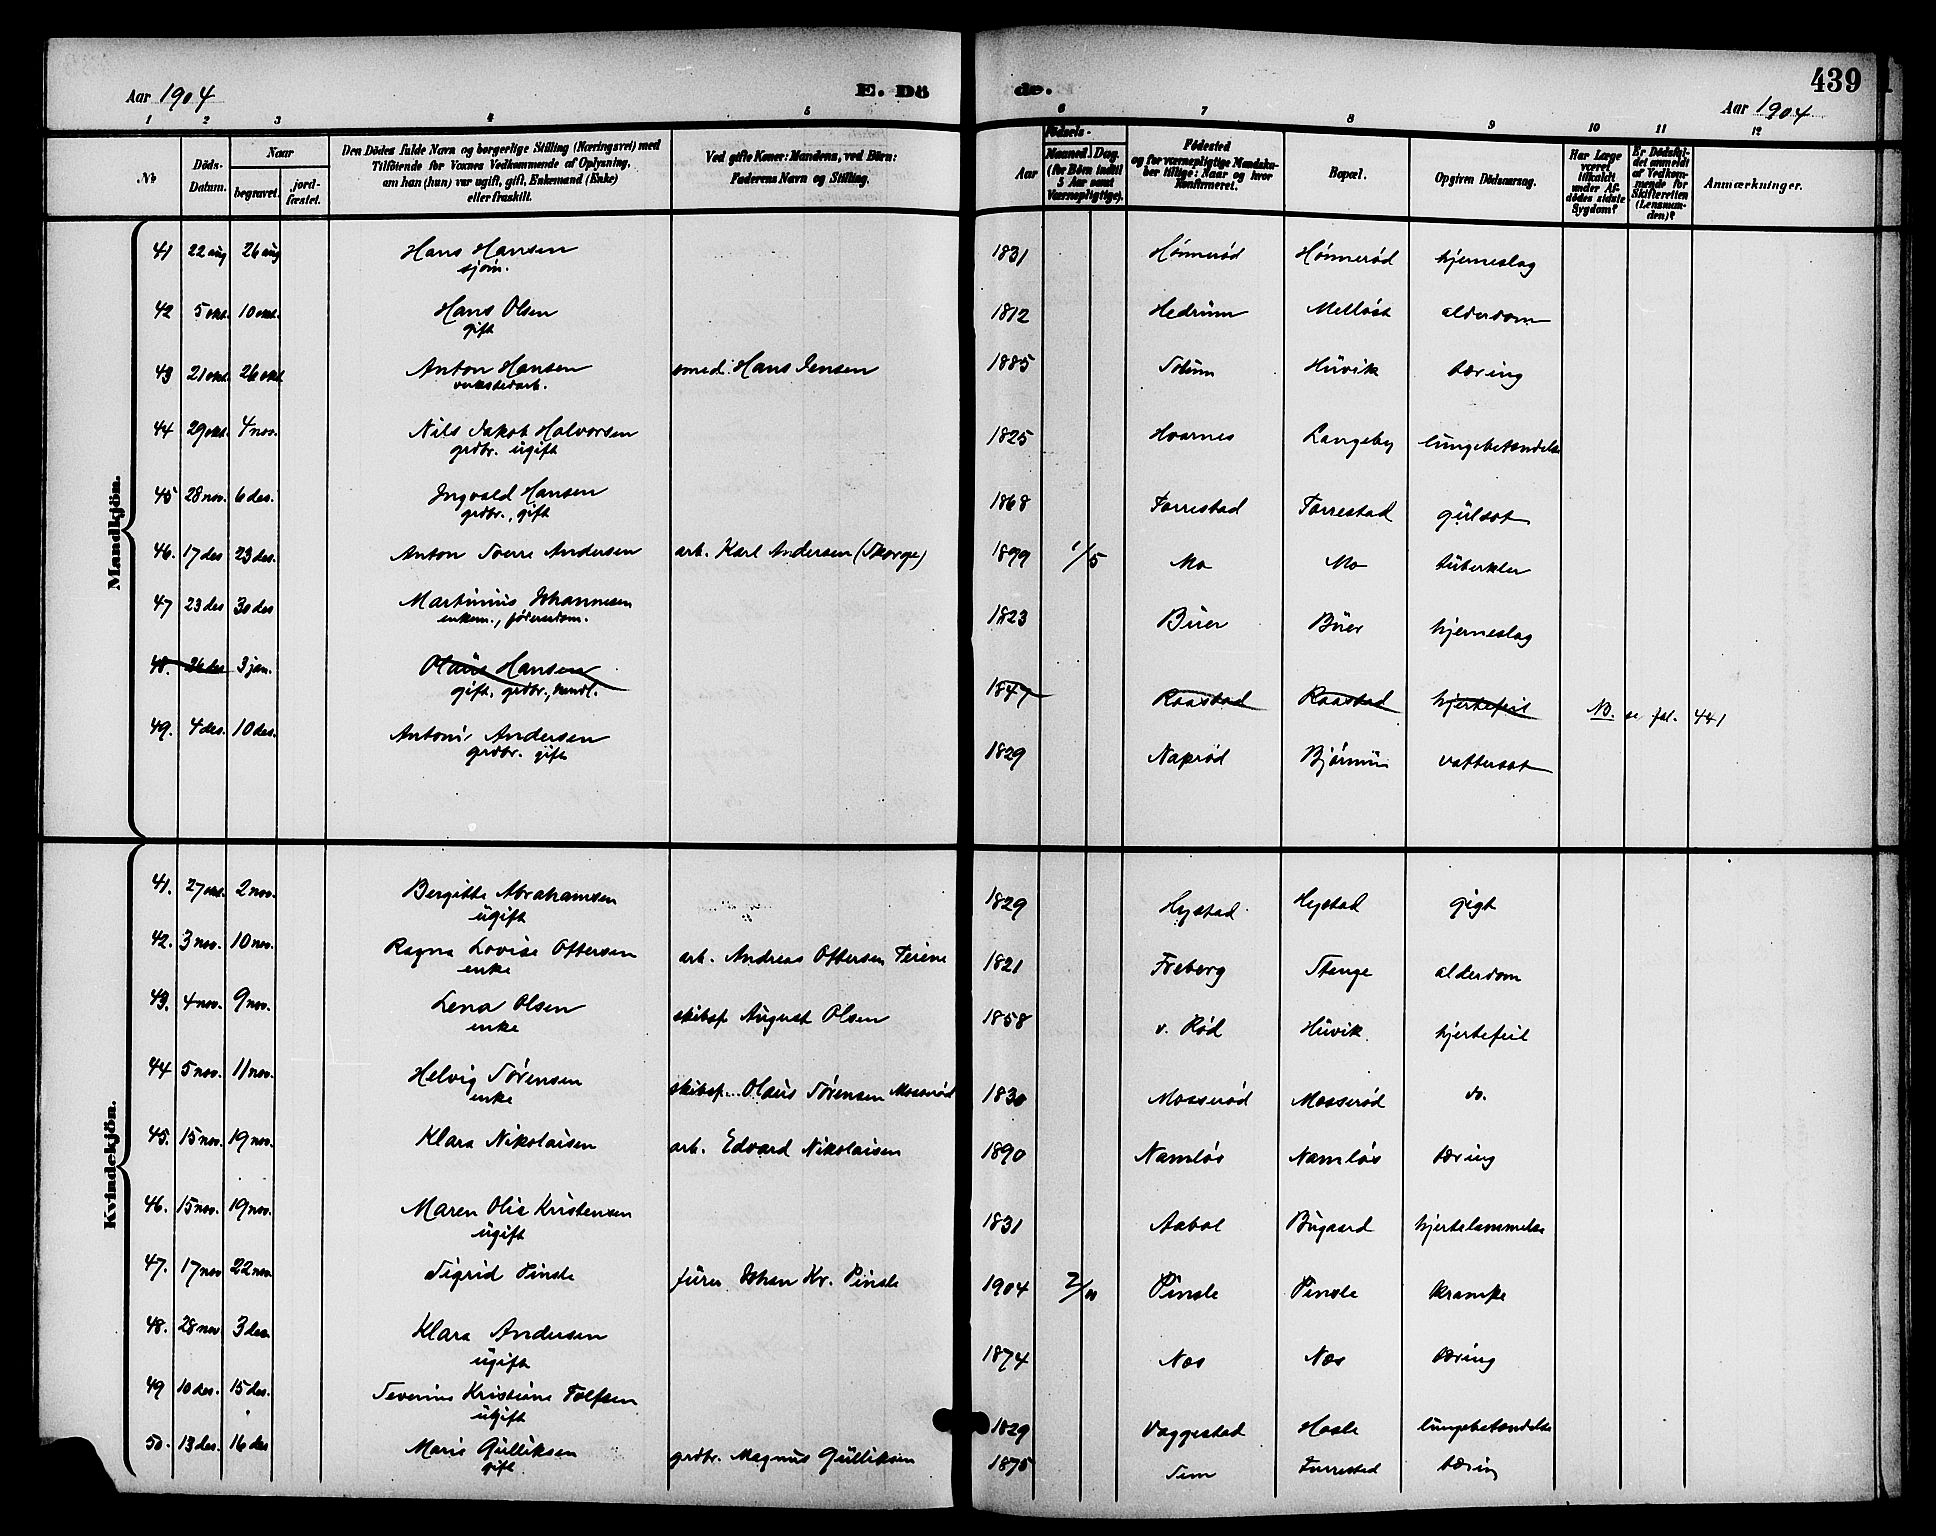 439
Aar 1904
E. Dö
de.
Aar 1904
1 2 3 4 5 6 7 8 9 10 11 12
No
Döds-Datum.
Naar
begravet.
jord-fæstet.
Den Dödes fulde Navn og borgerlige Stilling (Næringsvei) med
Tilföiende for Voxnes Vedkommende af Oplysning,
om han (hun) var ugift, gift, Enkemand (Enke)
eller fraskilt.
Ved gifte Koner: Mandens, ved Börn:
Faderens Navn og Stilling.
Födsels-
Aar
Maaned. Dag.
(for Börn indtil
5 Aar samt
Værnepligtige).
Födested
og for værnepligtige Mandska-
ber tillige: Naar og hvor
Konfirmeret.
Bopæl.
Opgiven Dödsaarsag.
Har Læge
været
tilkaldt
under Af-
dödes sidste
Sygdom?
Er Dödsfal-
det anmeldt
af Vedkom-
mende for
Skifteretten
(Lensman-
den)?
Anmærkninger.
Mandkjön.
41 22 aug 26 aug Hans Hansen 1831 Hønnerød Hønnerød hjerneslag
sjøm.
42 5 okt. 10 okt. Hans Olsen 1812 Hedrum Melløst alderdom
gift
43 21 okt. 26 okt Anton Hansen smed. Hans Jensen 1885 Solum Huvik tæring
verkstedarb.
44 29 okt. 4 nov. Nils Jakob Halvorsen 1825 Hvarnes Langeby lungebetændelse
grdbr. ugift
45 28 nov. 6 des. Ingvald Hansen 1868 Forrestad Forrestad gulsot
grdbr., gift
46. 17 des 23 des. Anton Sverre Andersen arb. Karl Andersen (Skorge) 1899 1/5 Mo Mo tuberkler
47 23 des 30 des Martinius Johannesen 1823 Buer Buer hjerneslag
enkem., føderaadsm.
48. 26 des 3 jan. Olaus Hansen 1847 Raastad Raastad hjertefeil NB. se fol. 441
gift. grdbr., handl.
49. 4 des. 10 des. Antoni Andersen 1829 Naprød Bjørnum vattersot
grdbr. gift
Kvindekjön.
41. 27 okt. 2 nov. Bergitte Abrahamsen 1829 Hystad Hystad gigt
ugift
42. 3 nov. 10 nov. Ragna Lovise Ottersen arb. Andreas Ottersen Feiene 1821 Freberg Stenge alderdom
enke
43. 4 nov. 9 nov. Lena Olsen skibsf. August Olsen 1858 v. Rød Huvik. hjertefeil
enke
44 5 nov. 11 nov. Helvig Sørensen skibsf. Olaus Sørensen Mosserød 1830 Mosserød Mosserød do.
enke
45. 15 nov. 19 nov. Klara Nikolaisen arb. Edvard Nikolaisen 1890 Namløs Namløs tæring
46. 15 nov. 19 nov. Maren Olia Kristensen 1831 Aabol Bugaard hjertelammelse
ugift
47. 17 nov 22 nov. Sigrid Pinsle furer Johan Kr. Pinsle 1904 2/10 Pinsle Pinsle krampe
48. 28 nov 3 des. Klara Andersen 1874 Nes Nes tæring
ugift
49 10 des. 15 des. Severine Kristiane Tolfsen 1829 Vaggestad Hasle lungebetændelse
ugift
50. 13 des. 16 des Marie Gulliksen grdbr. Magnus Gulliksen 1875 Sem Furrestad tæring
gift